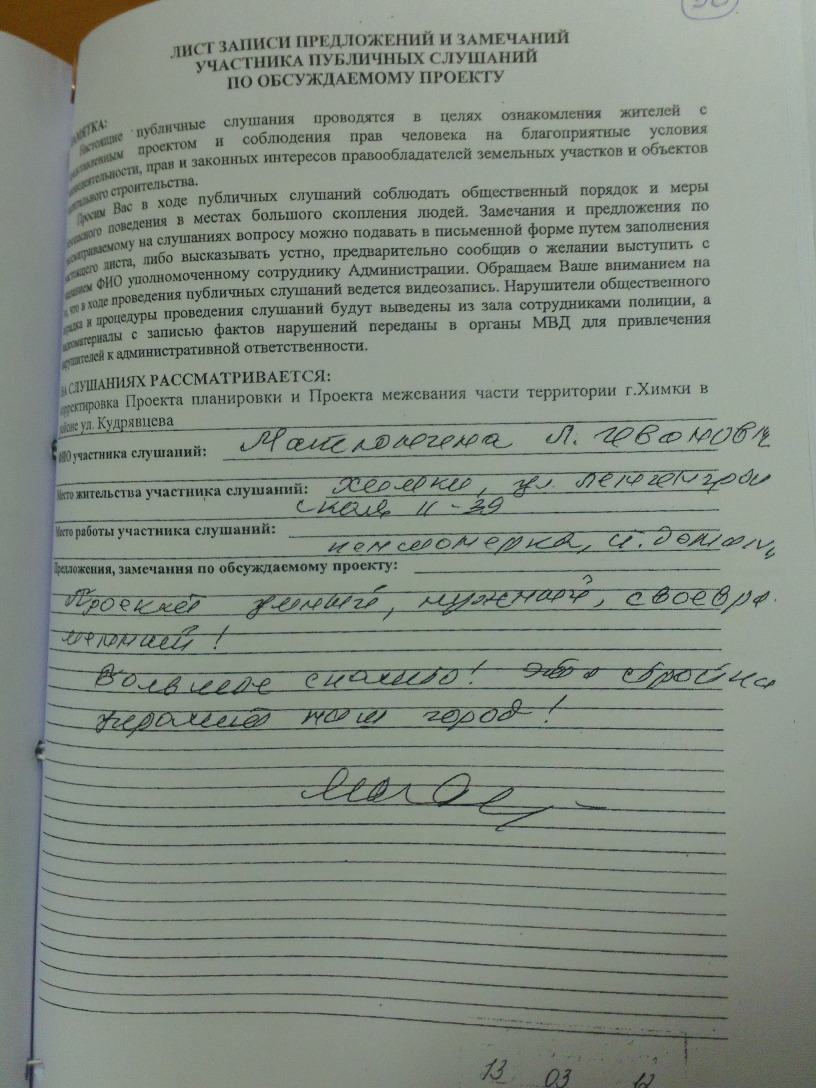 ЛИСТ ЗАПИСИ ПРЕДЛОЖЕНИЙ И ЗАМЕЧАНИЙ
УЧАСТНИКА ПУБЛИЧНЫХ СЛУШАНИЙ
ПО ОБСУЖДАЕМОМУ ПРОЕКТУ
Настоящие публичные слушания проводятся в целях ознакомления жителей с
проектом и соблюдения прав человека на благоприятные условия
прав и законных интересов правообладателей земельных участков и объектов
строительства.
Просим Вас в ходе публичных слушаний соблюдать общественный порядок и меры
поведения в местах большого скопления людей. Замечания и предложения по
на слушаниях вопросу можно подавать в письменной форме путем заполнения
листа, либо высказывать устно, предварительно сообщив о желании выступить с
ФИО уполномоченному сотруднику Администрации. Обращаем Ваше вниманием на
что в ходе проведения публичных слушаний ведется видеозапись. Нарушители общественного
и процедуры проведения слушаний будут выведены из зала сотрудниками полиции, а
с записью фактов нарушений переданы в органы МВД для привлечения
к административной ответственности.
НА СЛУШАНИЯХ РАССМАТРИВАЕТСЯ:
Проекта планировки и Проекта межевания части территории г.Химки в
районе ул. Кудрявцева
ФИО участника слушаний: Л.
Место жительства участника слушаний: Химки, ул. Ленинград
ская 11-39
Место работы участника слушаний:
пенсионерка,
Предложения, замечания по обсуждаемому проекту:
Проект нужный, своевре
менный!
Большое спасибо! Эта стройка
украсит наш город!
13 03 12